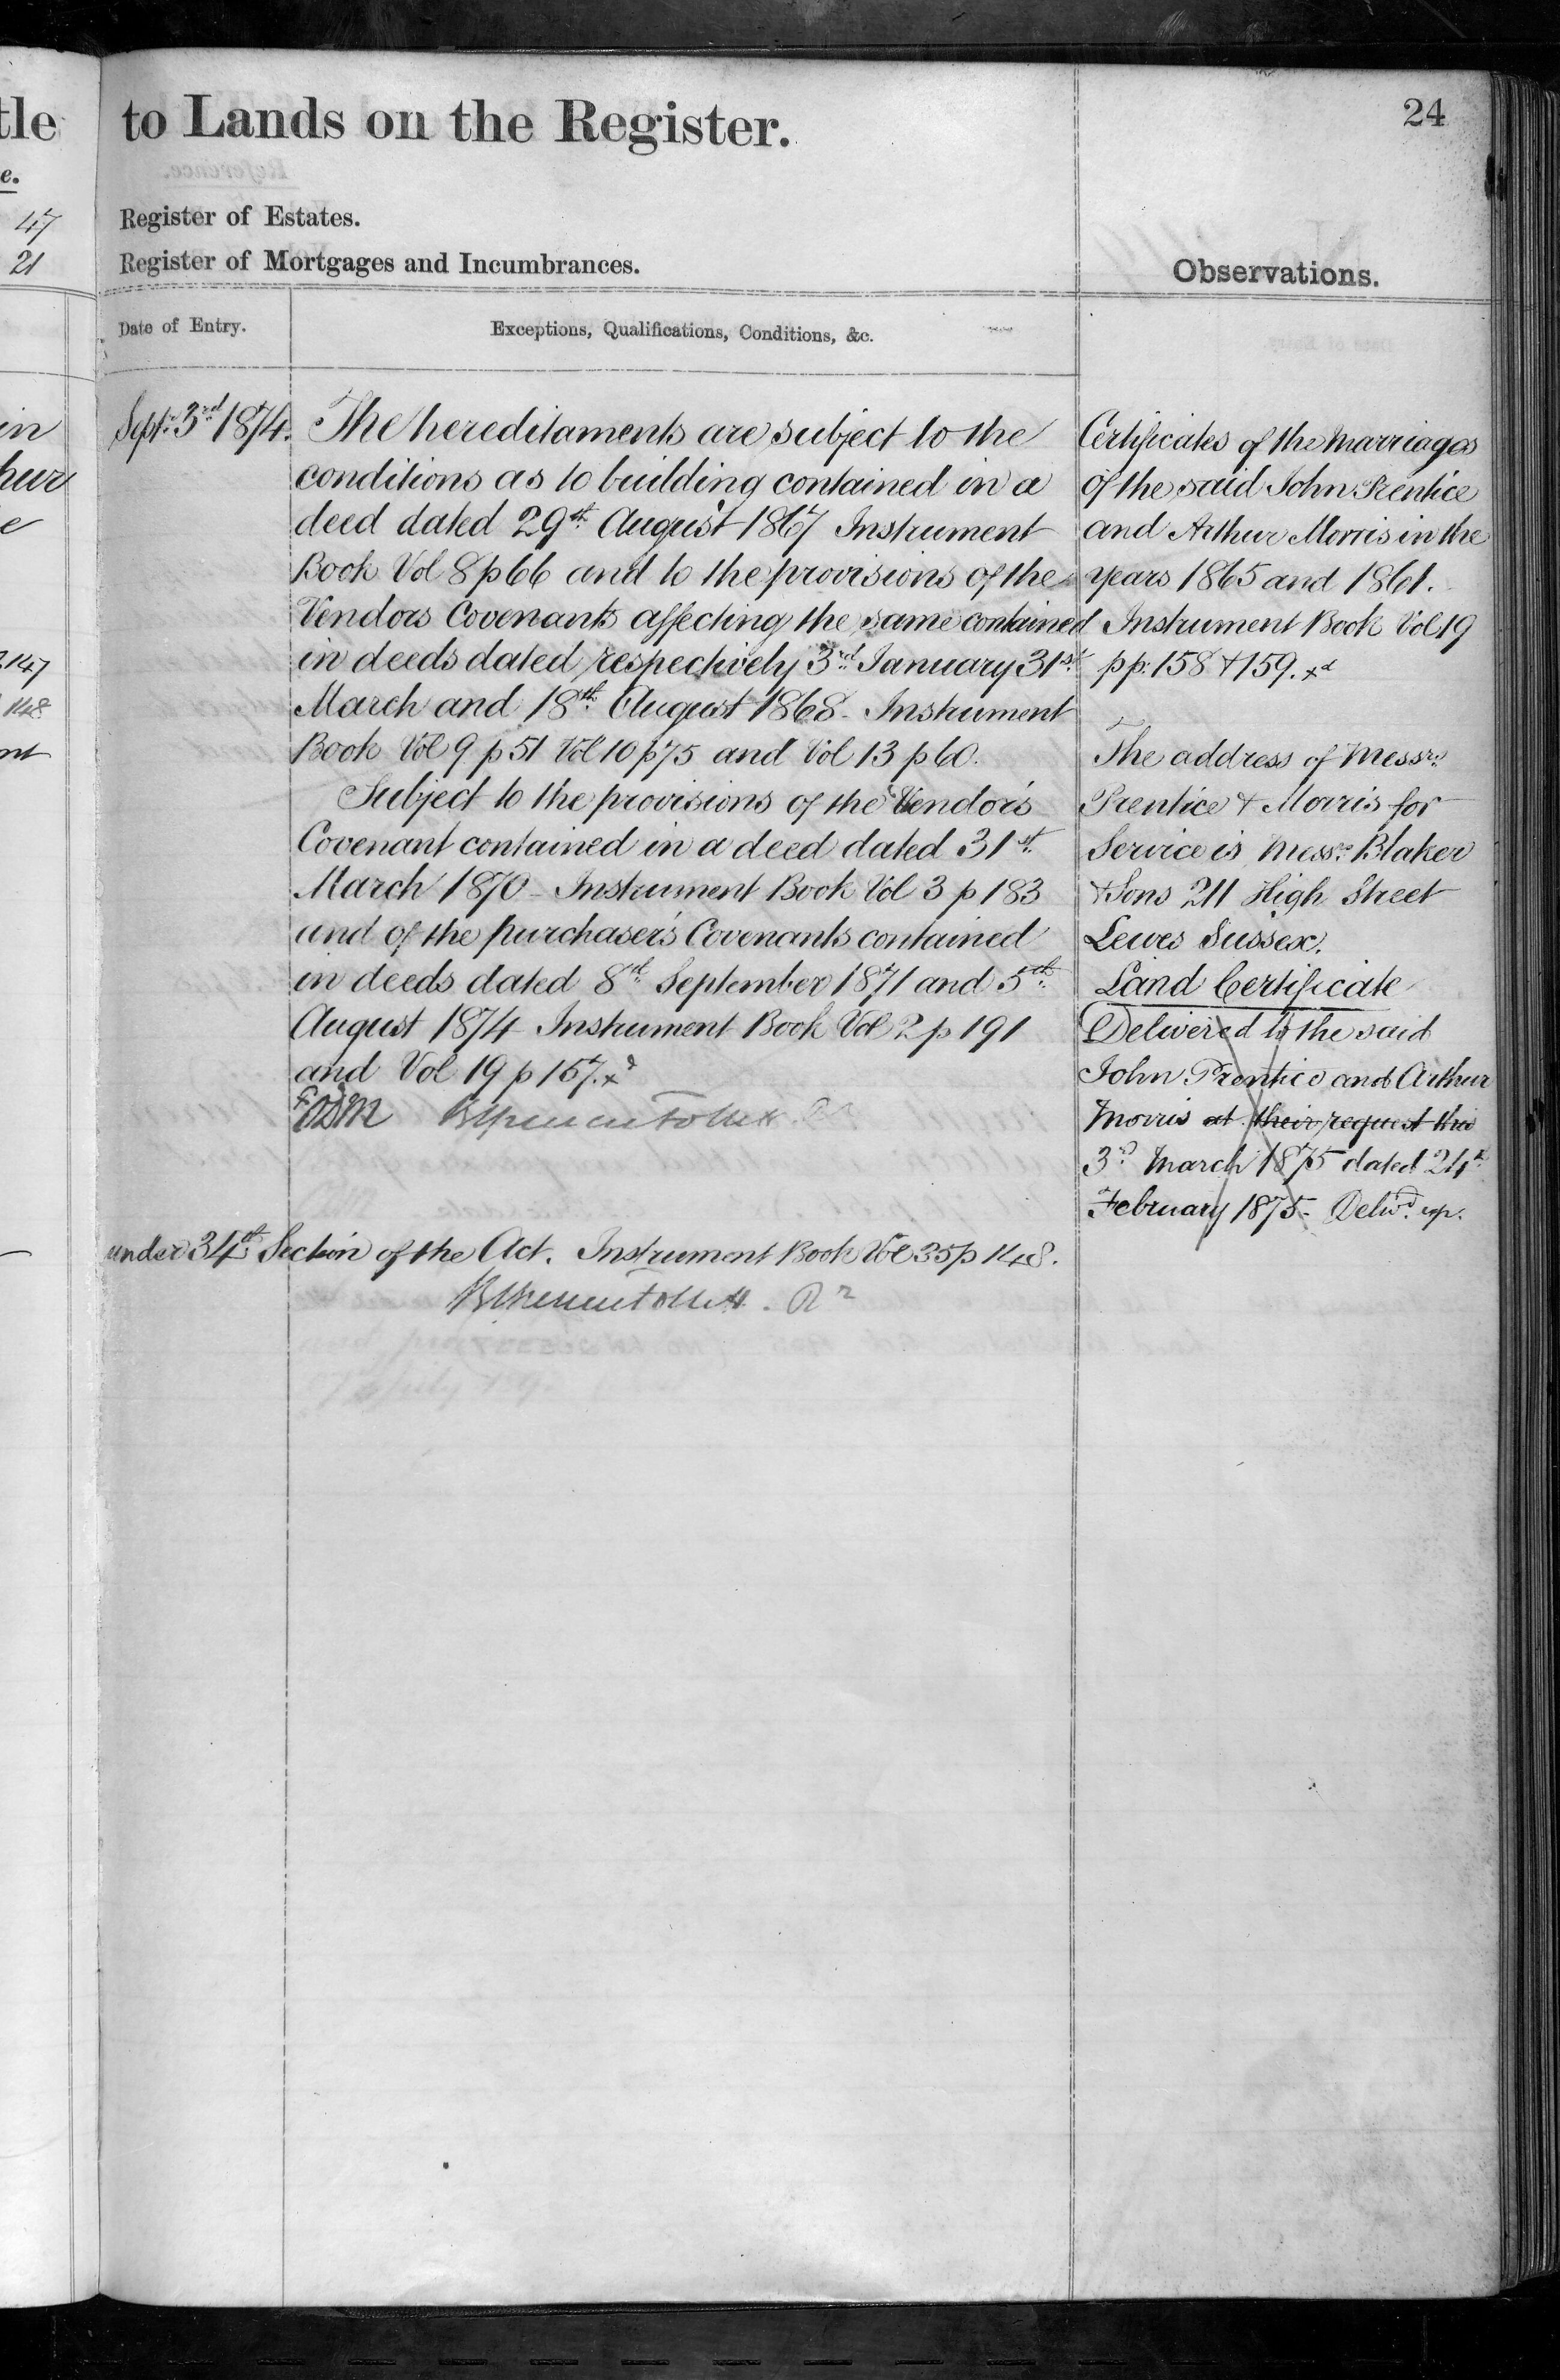 tle
e.
47
21
in
hur
e
147
148
nt
to Lands on the Register.
24
Register of Estates.
Register of Mortgages and Incumbrances.
Observations.
Date of Entry.
Exceptions, Qualifications, Conditions, &c.
Sept. 3rd 1874.
The hereditaments are subject to the
conditions as to building contained in a
deed dated 29th August 1867 Instrument
Book Vol 8 p 66 and to the provisions of the
Vendors Covenants affecting the same contained
in deeds dated respectively 3rd January 31st
March and 18th August 1868 - Instrument
Book Vol 9 p 51 Vol 10 p 75 and Vol 13 p 60.
Subject to the provisions of the Vendor's
Covenant contained in a deed dated 31st
March 1870 - Instrument Book Vol 3 p 183
and of the purchaser's Covenants contained
in deeds dated 8th September 1871 and 5th
August 1874 Instrument Book Vol 2 p 191
and Vol 19 p 157. xd
Certificates of the marriages
of the said John Prentice
and Arthur Morris in the
years 1865 and 1861.
Instrument Book Vol 19
pp. 158 & 159. xd
The address of Messrs.
Prentice & Morris for
Service is Messrs. Blaker
& Sons 211 High Street
Lewes Sussex.
Land Certificate
Delivered to the said
John Prentice and Arthur
Morris at their request this
3rd March 1875 dated 24th
February 1875 - Deliv'd up.
under 34th Section of the Act. Instrument Book Vol 35 p 148.
Rr